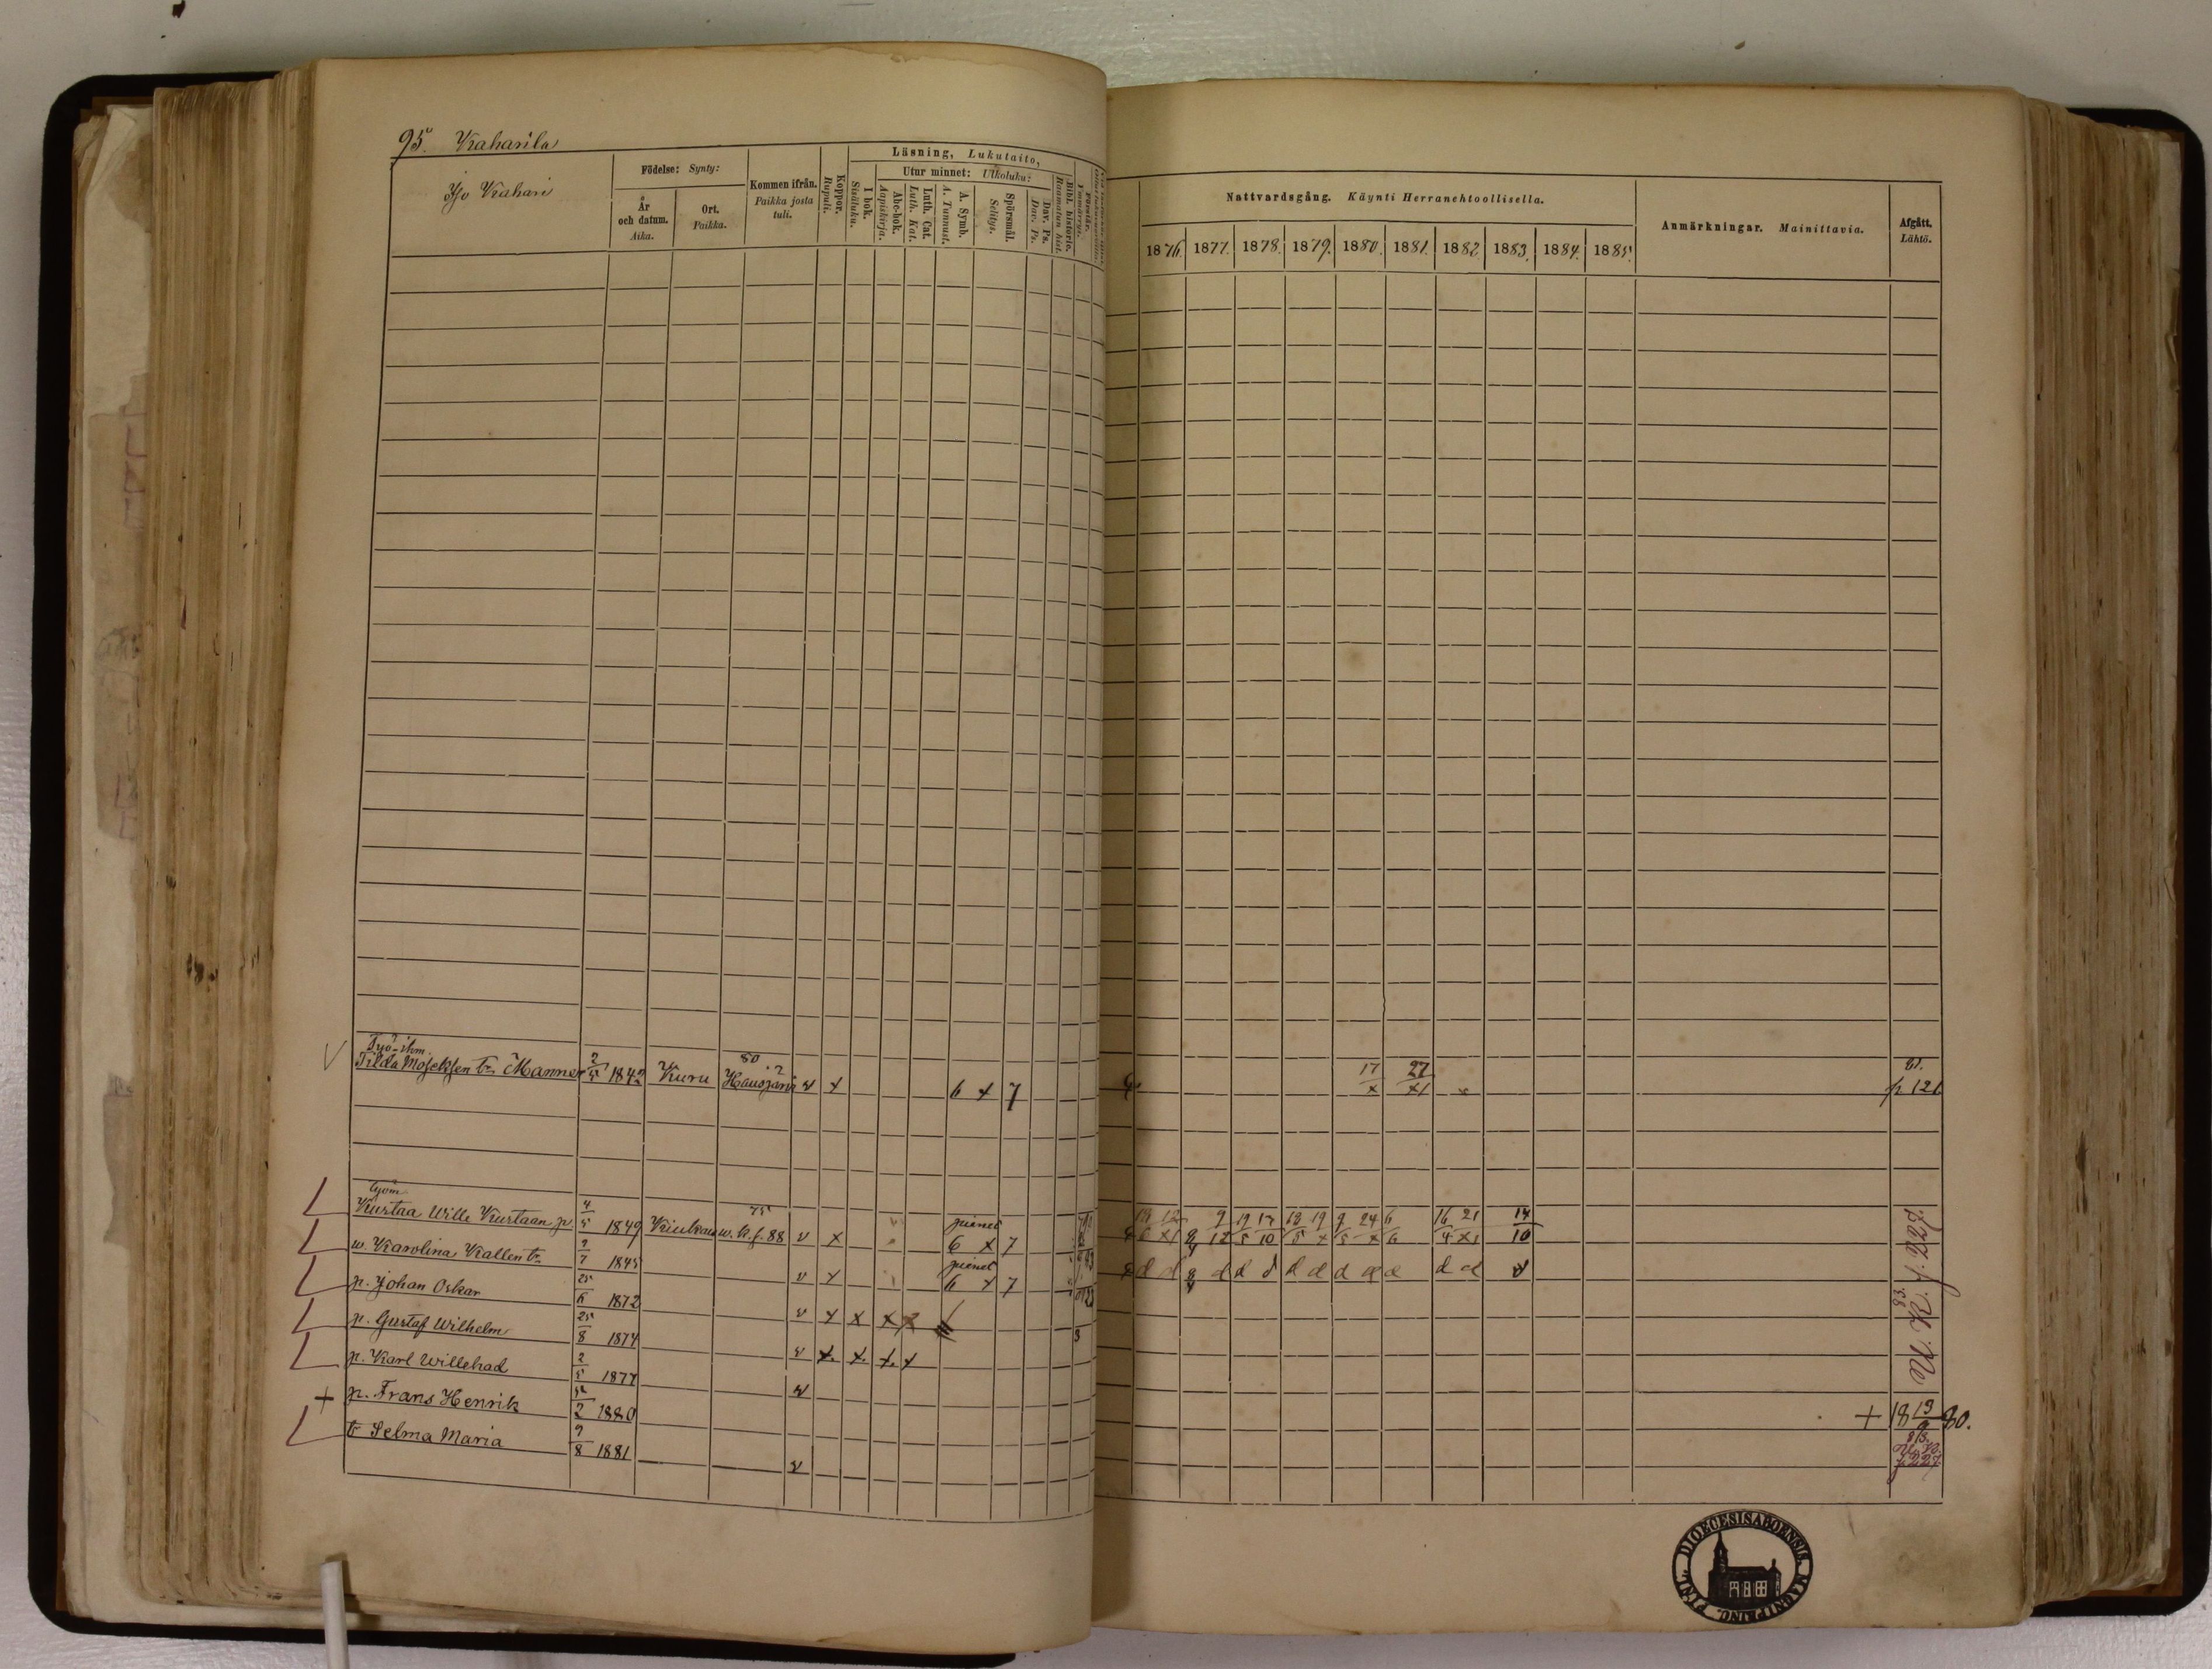 95. Kaharila
Iso Kahari
Födelse: Synty:
År och datum. Aika.
Ort. Paikka.
Kommen ifrån. Paikka josta tuli.
Koppor. Rupuli.
Läsning, Lukutaito,
I bok. Sisäluku.
Utur minnet: Ulkoluku:
Abc-bok. Aapiskirja.
Luth. Cat. Luth. Kat.
A. Symb. A. Tunnust.
Spörsmål. Selitys.
Dav. Ps. Dav. Ps.
Bibl. historie. Raamatun hist.
Förstår. Ymmärrys.
Nattvardsgång. Käynti Herranehtoollisella.
1876. 1877. 1878. 1879. 1880. 1881. 1882. 1883. 1884. 1885.
Anmärkningar. Mainittavia.
Afgått. Lähtö.
Työ-ihm. 80 17 27 81.
Tilda Moseksen tr. Manner 2/5 1842 Kuru Hausjärvi v x 6 x 7 x x1 x p. 121
Työm. 75
Kustaa Wille Kustaan p. 4/5 1849 Kiukais w. k. s. 88 v x pienet 6 x 7 9/12 19/5 17/10 18/5 19/x 9/5 24/x 6/6 16/4 21/x1 14/10
w. Karolina Kallen tr. 9/7 1845 v x pienet 6 x 7 d d d d d d d d d d d d
p. Johan Oskar 25/6 1872 v x x x
p. Gustaf Wilhelm 25/8 1874 v x. x. x. x
p. Karl Willehad 2/5 1877 v
83. U. K. s. 227.
+ p. Frans Henrik 2 1880 + 18 19/9 80.
t. Selma Maria 9/8 1881 v 83. U. K. s. 227.
DIOECESIS ABOENSIS MAGNI PRINC. FINL.